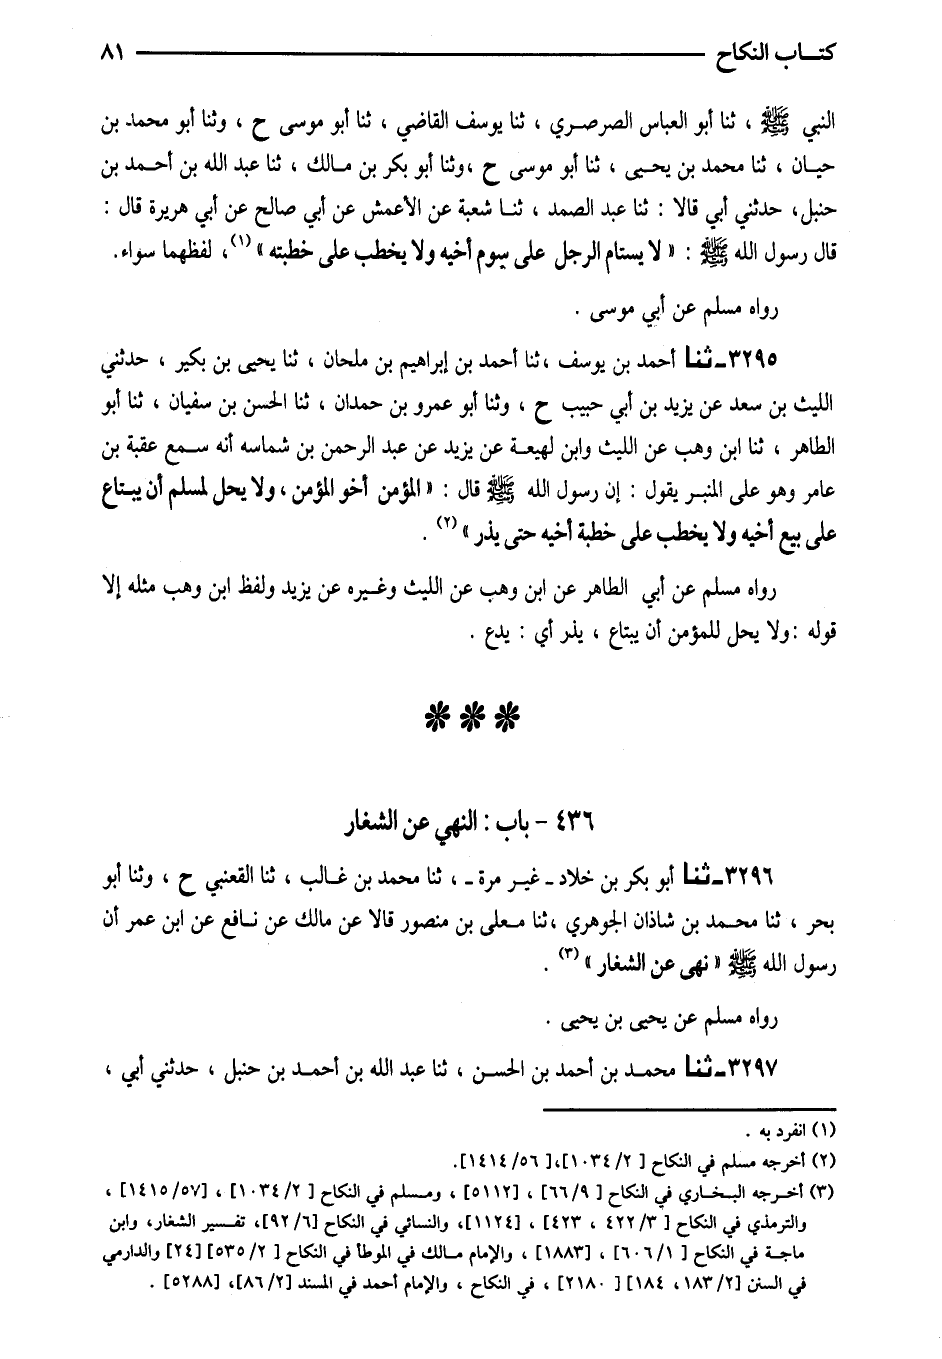 كتاب النكاح ٨١
النبي ﷺ ، ثنا أبو العباس الصرصري ، ثنا يوسف القاضي ، ثنا أبو موسى ح ، وثنا أبو محمد بن
حيان ، ثنا محمد بن يحيى ، ثنا أبو موسى ح ،وثنا أبو بكر بن مالك ، ثنا عبد الله بن أحمد بن
حنبل، حدثني أبي قالا : ثنا عبد الصمد ، ثنا شعبة عن الأعمش عن أبي صالح عن أبي هريرة قال :
قال رسول الله ﷺ : « لا يستام الرجل على سوم أخيه ولا يخطب على خطبته »(١)، لفظهما سواء.
رواه مسلم عن أبي موسى .
٣٢٩٥ـ ثنا أحمد بن يوسف ،ثنا أحمد بن إبراهيم بن ملحان ، ثنا يحيى بن بكير ، حدثني
الليث بن سعد عن يزيد بن أبي حبيب ح ، وثنا أبو عمرو بن حمدان ، ثنا الحسن بن سفيان ، ثنا أبو
الطاهر ، ثنا ابن وهب عن الليث وابن لهيعة عن يزيد عن عبد الرحمن بن شماسه أنه سمع عقبة بن
عامر وهو على المنبر يقول : إن رسول الله ﷺ قال : « المؤمن أخو المؤمن ، ولا يحل لمسلم أن يبتاع
على بيع أخيه ولا يخطب على خطبة أخيه حتى يذر »(٢) .
رواه مسلم عن أبي الطاهر عن ابن وهب عن الليث وغيره عن يزيد ولفظ ابن وهب مثله إلا
قوله :ولا يحل للمؤمن أن يبتاع ، يذر أي : يدع .
٤٣٦ - باب : النهي عن الشغار
٣٢٩٦ـ ثنا أبو بكر بن خلاد ـ غير مرة ـ ، ثنا محمد بن غالب ، ثنا القعنبي ح ، وثنا أبو
بحر ، ثنا محمد بن شاذان الجوهري ،ثنا معلى بن منصور قالا عن مالك عن نافع عن ابن عمر أن
رسول الله ﷺ « نهى عن الشغار »(٣) .
رواه مسلم عن يحيى بن يحيى .
٣٢٩٧ـ ثنا محمد بن أحمد بن الحسن ، ثنا عبد الله بن أحمد بن حنبل ، حدثني أبي ،
(١) انفرد به .
(٢) أخرجه مسلم في النكاح [ ٢/ ١٠٣٤]،[ ٥٦/ ١٤١٤].
(٣) أخرجه البخاري في النكاح [ ٩/ ٦٦] ، [٥١١٢] ، ومسلم في النكاح [ ٢/ ١٠٣٤] ، [٥٧/ ١٤١٥] ،
والترمذي في النكاح [ ٣/ ٤٢٢ ، ٤٢٣] ، [١١٢٤]، والنسائي في النكاح [٦/ ٩٢]، تفسير الشغار، وابن
ماجة في النكاح [ ١/ ٦٠٦] ، [١٨٨٣] ، والإمام مالك في الموطأ في النكاح [ ٢/ ٥٣٥] [٢٤] والدارمي
في السنن [٢/ ١٨٣، ١٨٤] [ ٢١٨٠] ، في النكاح ، والإمام أحمد في المسند [٢/ ٨٦]، [٥٢٨٨] .